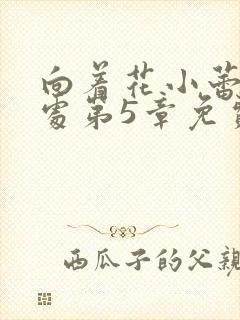 向着花小蕾
处第5章免
西瓜子的父親